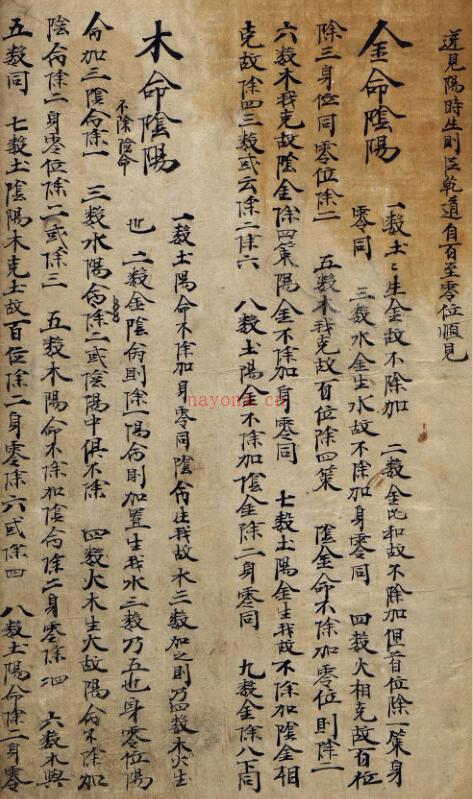 逆見陽時生則從乾道自百至零位順見
金命陰陽
一数土〻生金故不除加 二数金比和故不除加但首位除一策身
零同 三数水金生水故不除加身零同 四数火相克故百位
除三身位同零位除二 五数木我克故百位除四策 陰金命不除加零位則除二
六数木我克故陰金除四策陽金不除加身零同 七数土陽金生我故不除加陰金相
克故除四三数或云除二除六 八数土陽金不除加陰金除二身零同 九数金除八下同
木命陰陽
一数土陽命不除加身零同陰命生我故水三数加之則乃四数木火生
不除陰命
也 二数金陰命則除一陽命則加置生我水三数乃五也身零位陽
命加三陰命除一 三数水陽命除二或陰陽中俱不除 四数火木生火故陽命不除加
陰命除二身零位除二或除三 五数木陽命不除加陰命除二身零除四 六数木與
五数同 七数土陰陽木克土故百位除二身零除六或除四 八数土陽命除二身零
nayona.cn